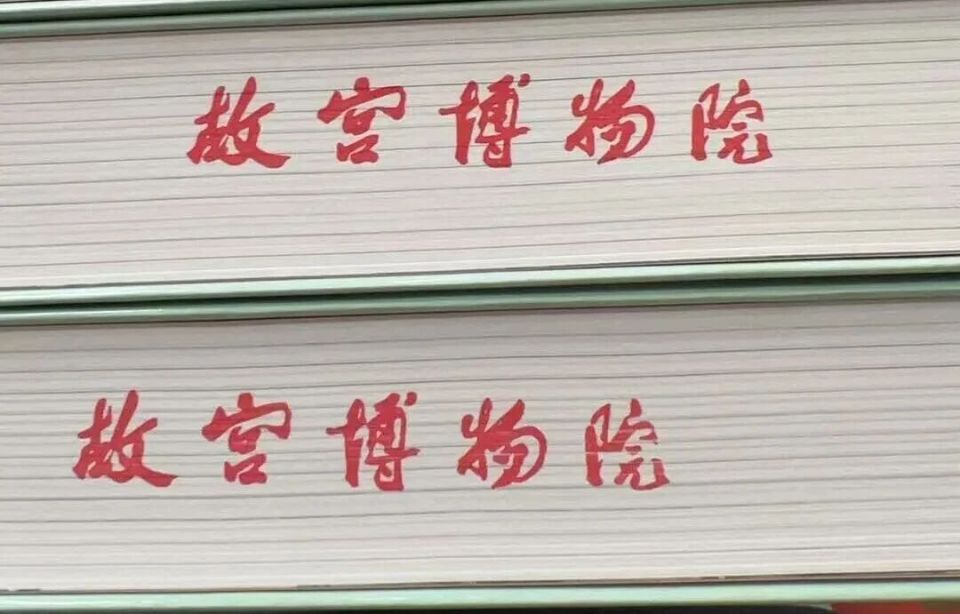 故宫博物院
故宫博物院